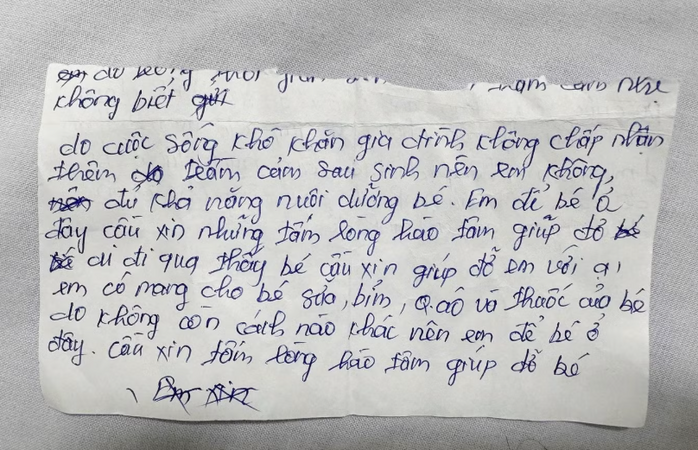 do
không biết gửi
do cuộc sống khó khăn gia đình không chấp nhận
thêm do trầm cảm sau sinh nên em không
nên đủ khả năng nuôi dưỡng bé. Em để bé ở
đây cầu xin những tấm lòng hảo tâm giúp đỡ bé
bé ai đi qua thấy bé cầu xin giúp đỡ em với ạ,
em có mang cho bé sữa, bỉm, q.áo và thuốc của bé
do không còn cách nào khác nên em để bé ở
đây. cầu xin tấm lòng hảo tâm giúp đỡ bé
Em xin